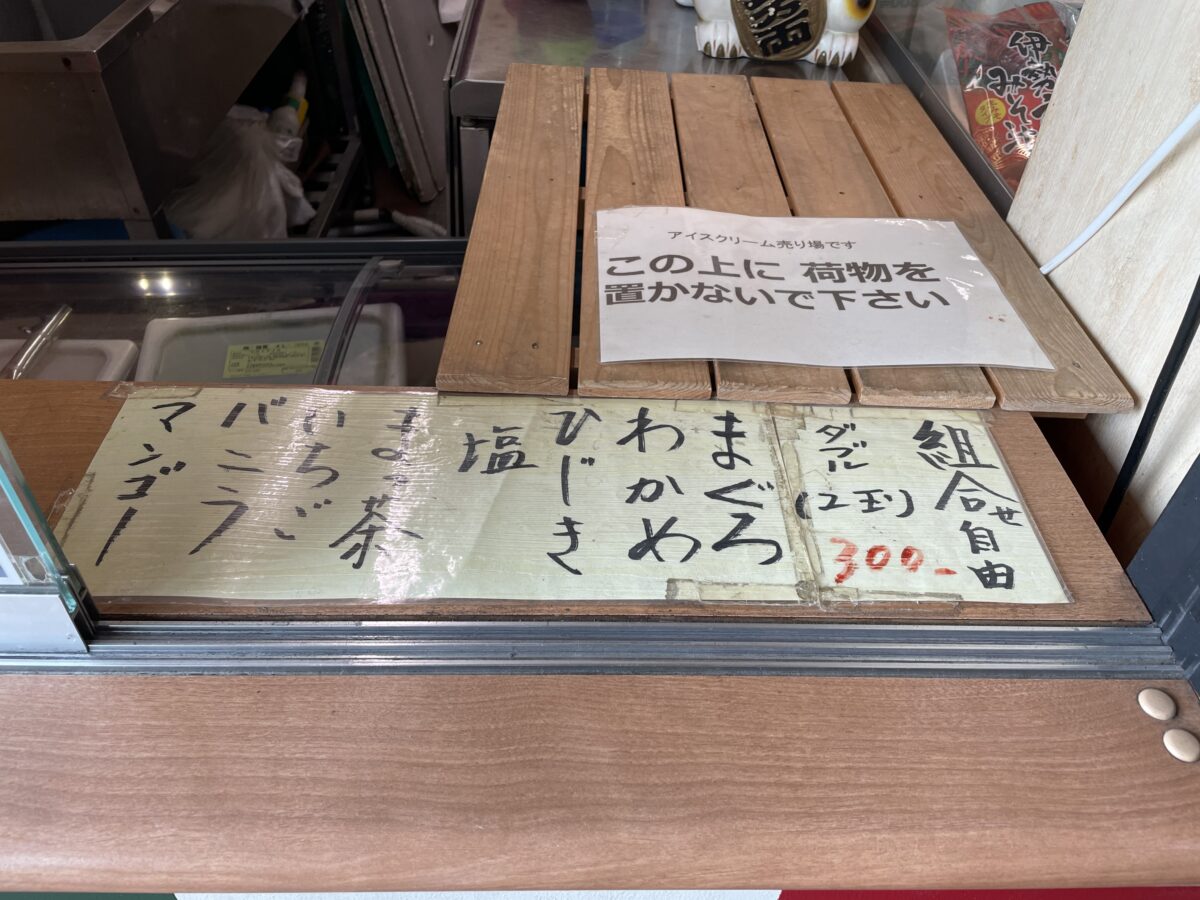 伊勢
みそ汁
アイスクリーム売り場です
この上に 荷物を
置かないで下さい
組合せ自由
ダブル
(2玉)
300-
まぐろ
わかめ
ひじき
塩
まっ茶
いちご
バニラ
マンゴー